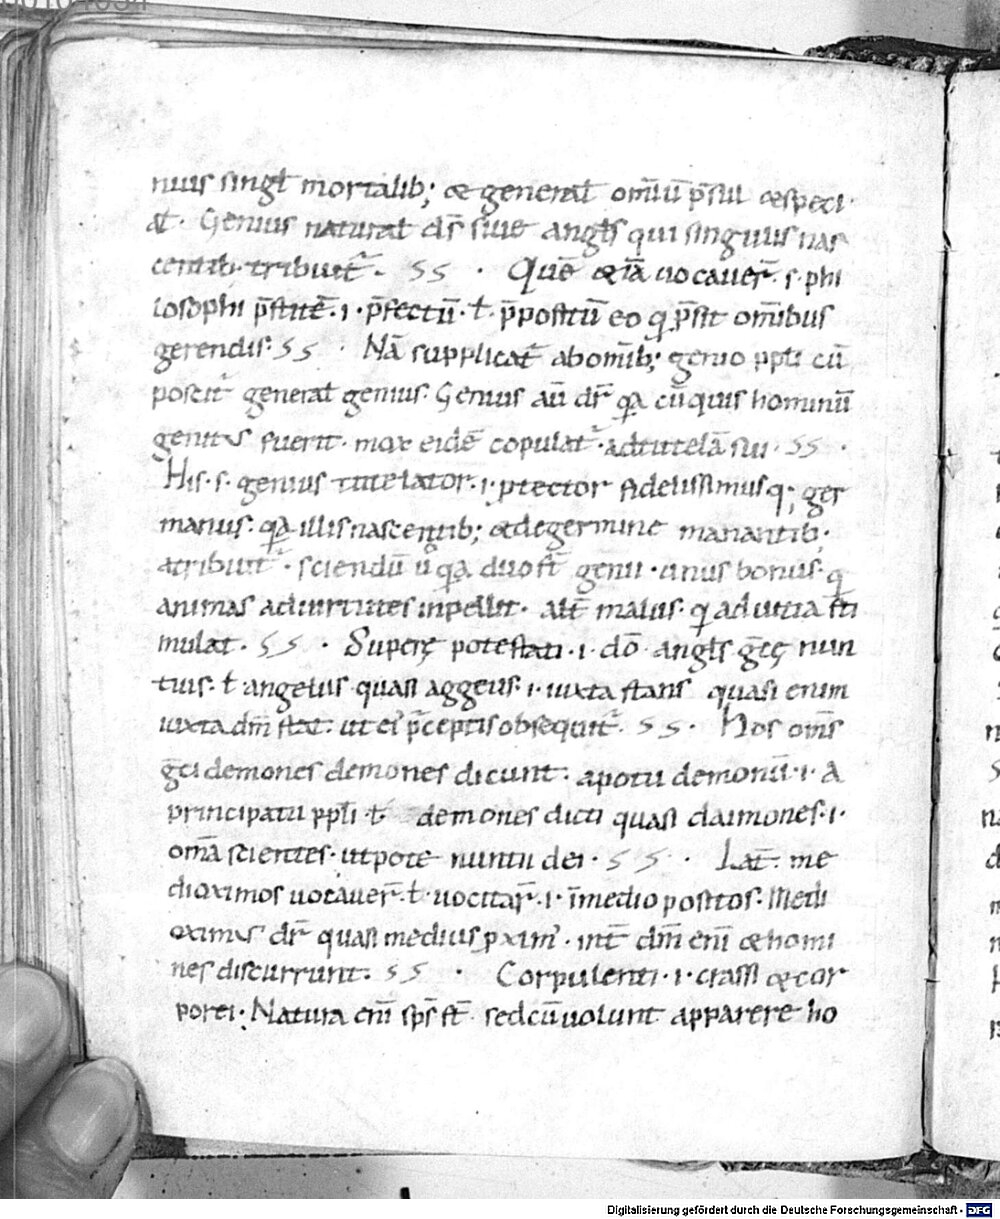 nius singł mortalib; & generał omīū p̄sul & speci
ał. Genius naturał dr̄ siue angłs qui singulis nas
centib. tribuit᷑. SS. Quē & iā uocauer̄. s. phi
losophi p̄stitē. i. p̄fectū. ł. p̄positū eo q p̄sit om̄ibus
gerendis. SS. Nā supplicat̄ ab om̄ib; genio ppłi cū
poscit᷑ generał genius. Genius aū dr̄ qa cū quis hominū
genitus fuerit. mox eidē copulat᷑. ad tutelā sui. SS.
His. s. genius tutelator. i. ptector fidelissimusq; ger
manus. qa illis nascentib; & de germine manantib;
atribuit᷑. sciendū ū qa duo st̄ genii. unus bonus. q
animas ad uirtutes inpellit. alt̄ malus. q ad uitia sti
mulat. SS. Superę potestati. i. dō. angłs ḡcę nun
tius. ł angelus quasi aggeus. i. iuxta stans quasi enim
iuxta dm̄ stat. ut ei᷒ p̄ceptis obsequit᷑. SS. Hos om̄s
ḡci demones demones dicunt. apotu demoniū. i. A
principatu ppłi. ł. demones dicti quasi daimones. i.
om̄a scientes. utpote nuntii dei. SS. Lat̄. me
dioximos uocauer̄. ł. uocitar̄. i. ī medio positos. Medi
oximus dr̄ quasi medius pxim᷒. int̄ dm̄ eni᷒ & homi
nes discurrunt. SS. Corpulenti. i. crassi & cor
porei. Natura eni᷒ sps̄ st̄. sed cū uolunt apparere ho
Digitalisierung gefördert durch die Deutsche Forschungsgemeinschaft - DFG